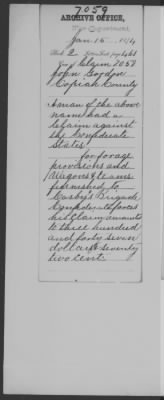 7059
ARCHIVE OFFICE,
War Department
Jan 15
2
Claim 7059
John Gordon
Copiah County
A man of the above
name had a
claim against
the Confederate
States
for forage
provisions and
Wagons & teams
furnished to
Cosby's Brigade,
Confederate forces
his Claim amounts
to three hundred
and forty seven
dollars & seventy
two cents